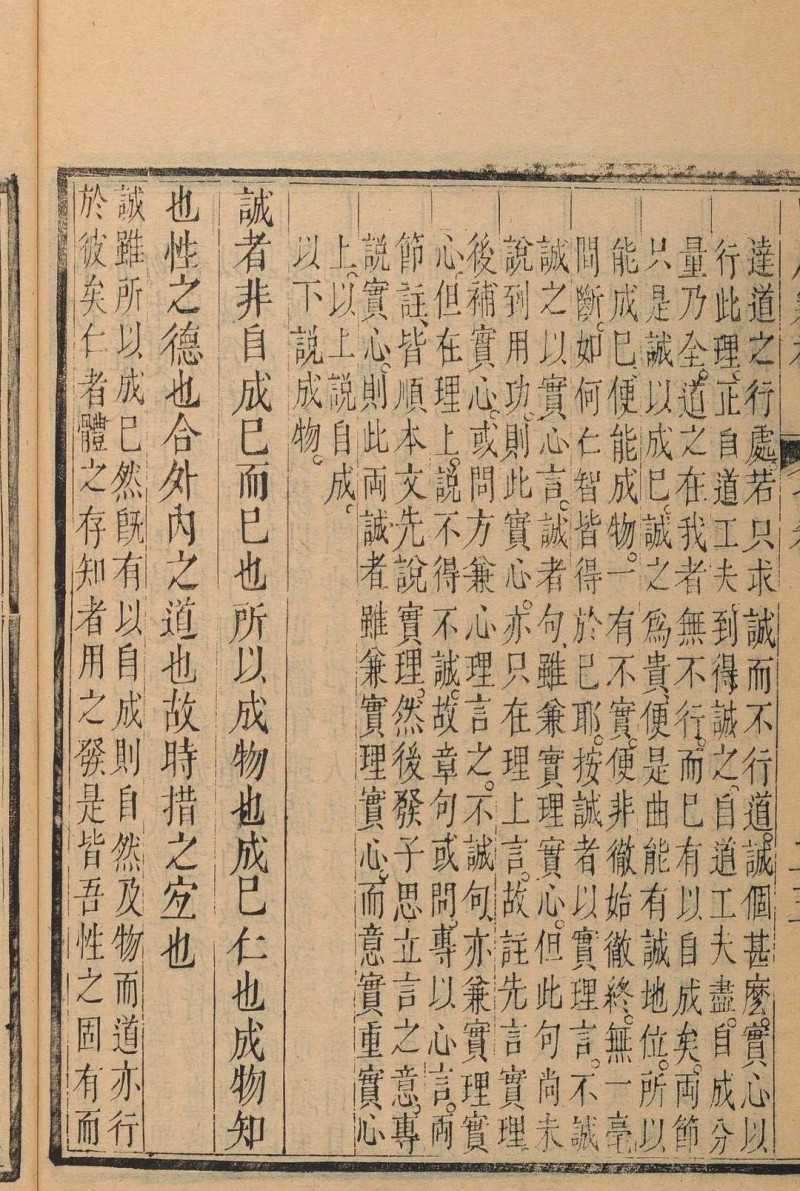 達道之行處若只求誠而不行道誠個甚麽實心以
行此理正自道工夫到得誠之自道工夫盡自成分
量乃全道之在我者無不行而已有以自成矣兩節
只是誠以成已誠之爲貴便是曲能有誠地位所以
能成已便能成物一有不實便非徹始徹終無一毫
間斷如何仁智皆得於已耶按誠者以實理言不誠
誠之以實心言誠者句雖兼實理實心但此句尚未
說到用功則此實心亦只在理上言故註先言實理
後補實心或問方兼心理言之不誠句亦兼實理實
心但在理上說不得不誠故章句或問專以心言兩
節註皆順本文先說實理然後發子思立言之意專
說實心則此兩誠者雖兼實理實心而意實重實心
上以上說自成
以下說成物
誠者非自成已而已也所以成物也成已仁也成物知
也性之德也合外內之道也故時措之宜也
誠雖所以成已然旣有以自成則自然及物而道亦行
於彼矣仁者體之存知者用之發是皆吾性之固有而